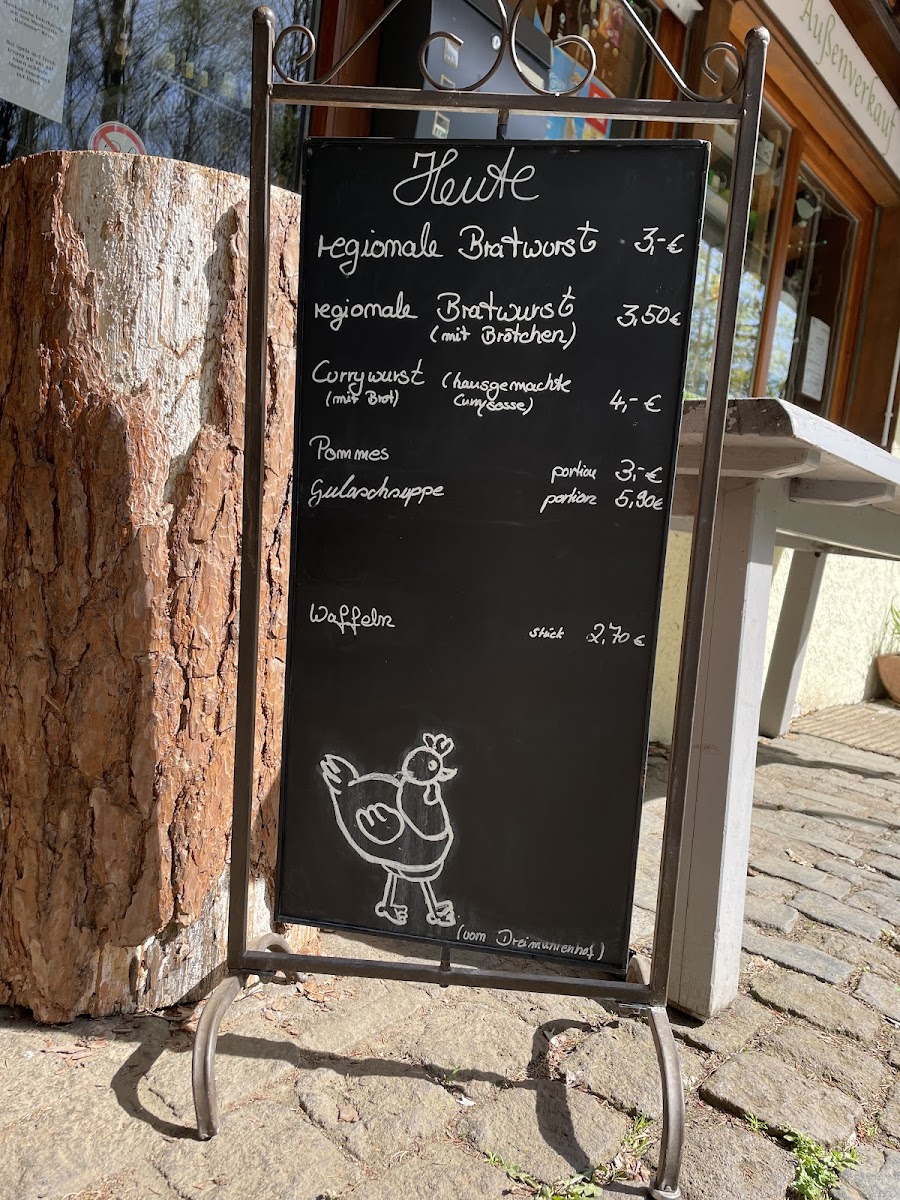 Außenverkauf
Heute
regionale Bratwurst 3,-€
regionale Bratwurst 3,50€
(mit Brötchen)
Currywurst (hausgemachte
(mit Brot) Currysosse) 4,-€
Pommes portion 3,-€
Gulaschsuppe portion 5,90€
Waffeln Stück 2,70€
(vom Dreimühlenhof)